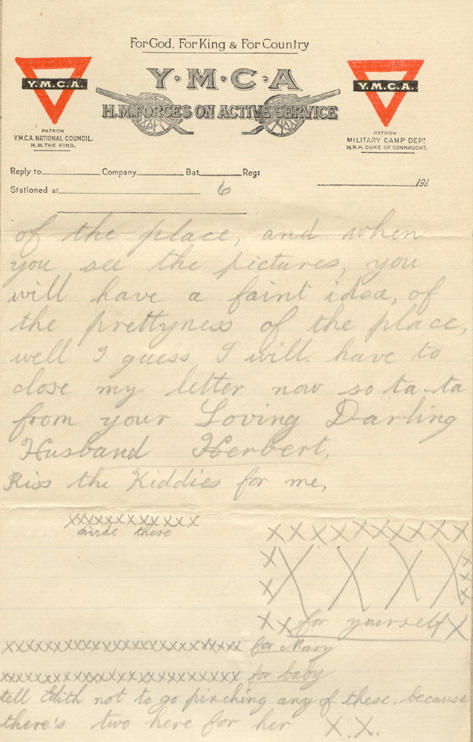 For God, For King & For Country
Y·M·C·A
H.M. FORCES ON ACTIVE SERVICE
Y.M.C.A.
PATRON
Y.M.C.A. NATIONAL COUNCIL.
H.M. THE KING.
Y.M.C.A.
PATRON
MILITARY CAMP DEPT
H.R.H. DUKE OF CONNAUGHT.
Reply to Company Bat. Regt
Stationed at 6 191
of the place, and when
you see the pictures, you
will have a faint idea, of
the prettyness of the place,
well I guess I will have to
close my letter now so ta-ta
from your Loving Darling
Husband Herbert,
Kiss the Kiddies for me,
XXXXXXXXXX XXXXXXXXX
these
X X X X X X
X X
X X for yourself X
XXXXXXXXXXXXXXXXXXXX for Mary
XXXXXXXXXXXXXXXXXXXX for baby
tell Edith not to go pinching any of these, because
there's two here for her X.X.